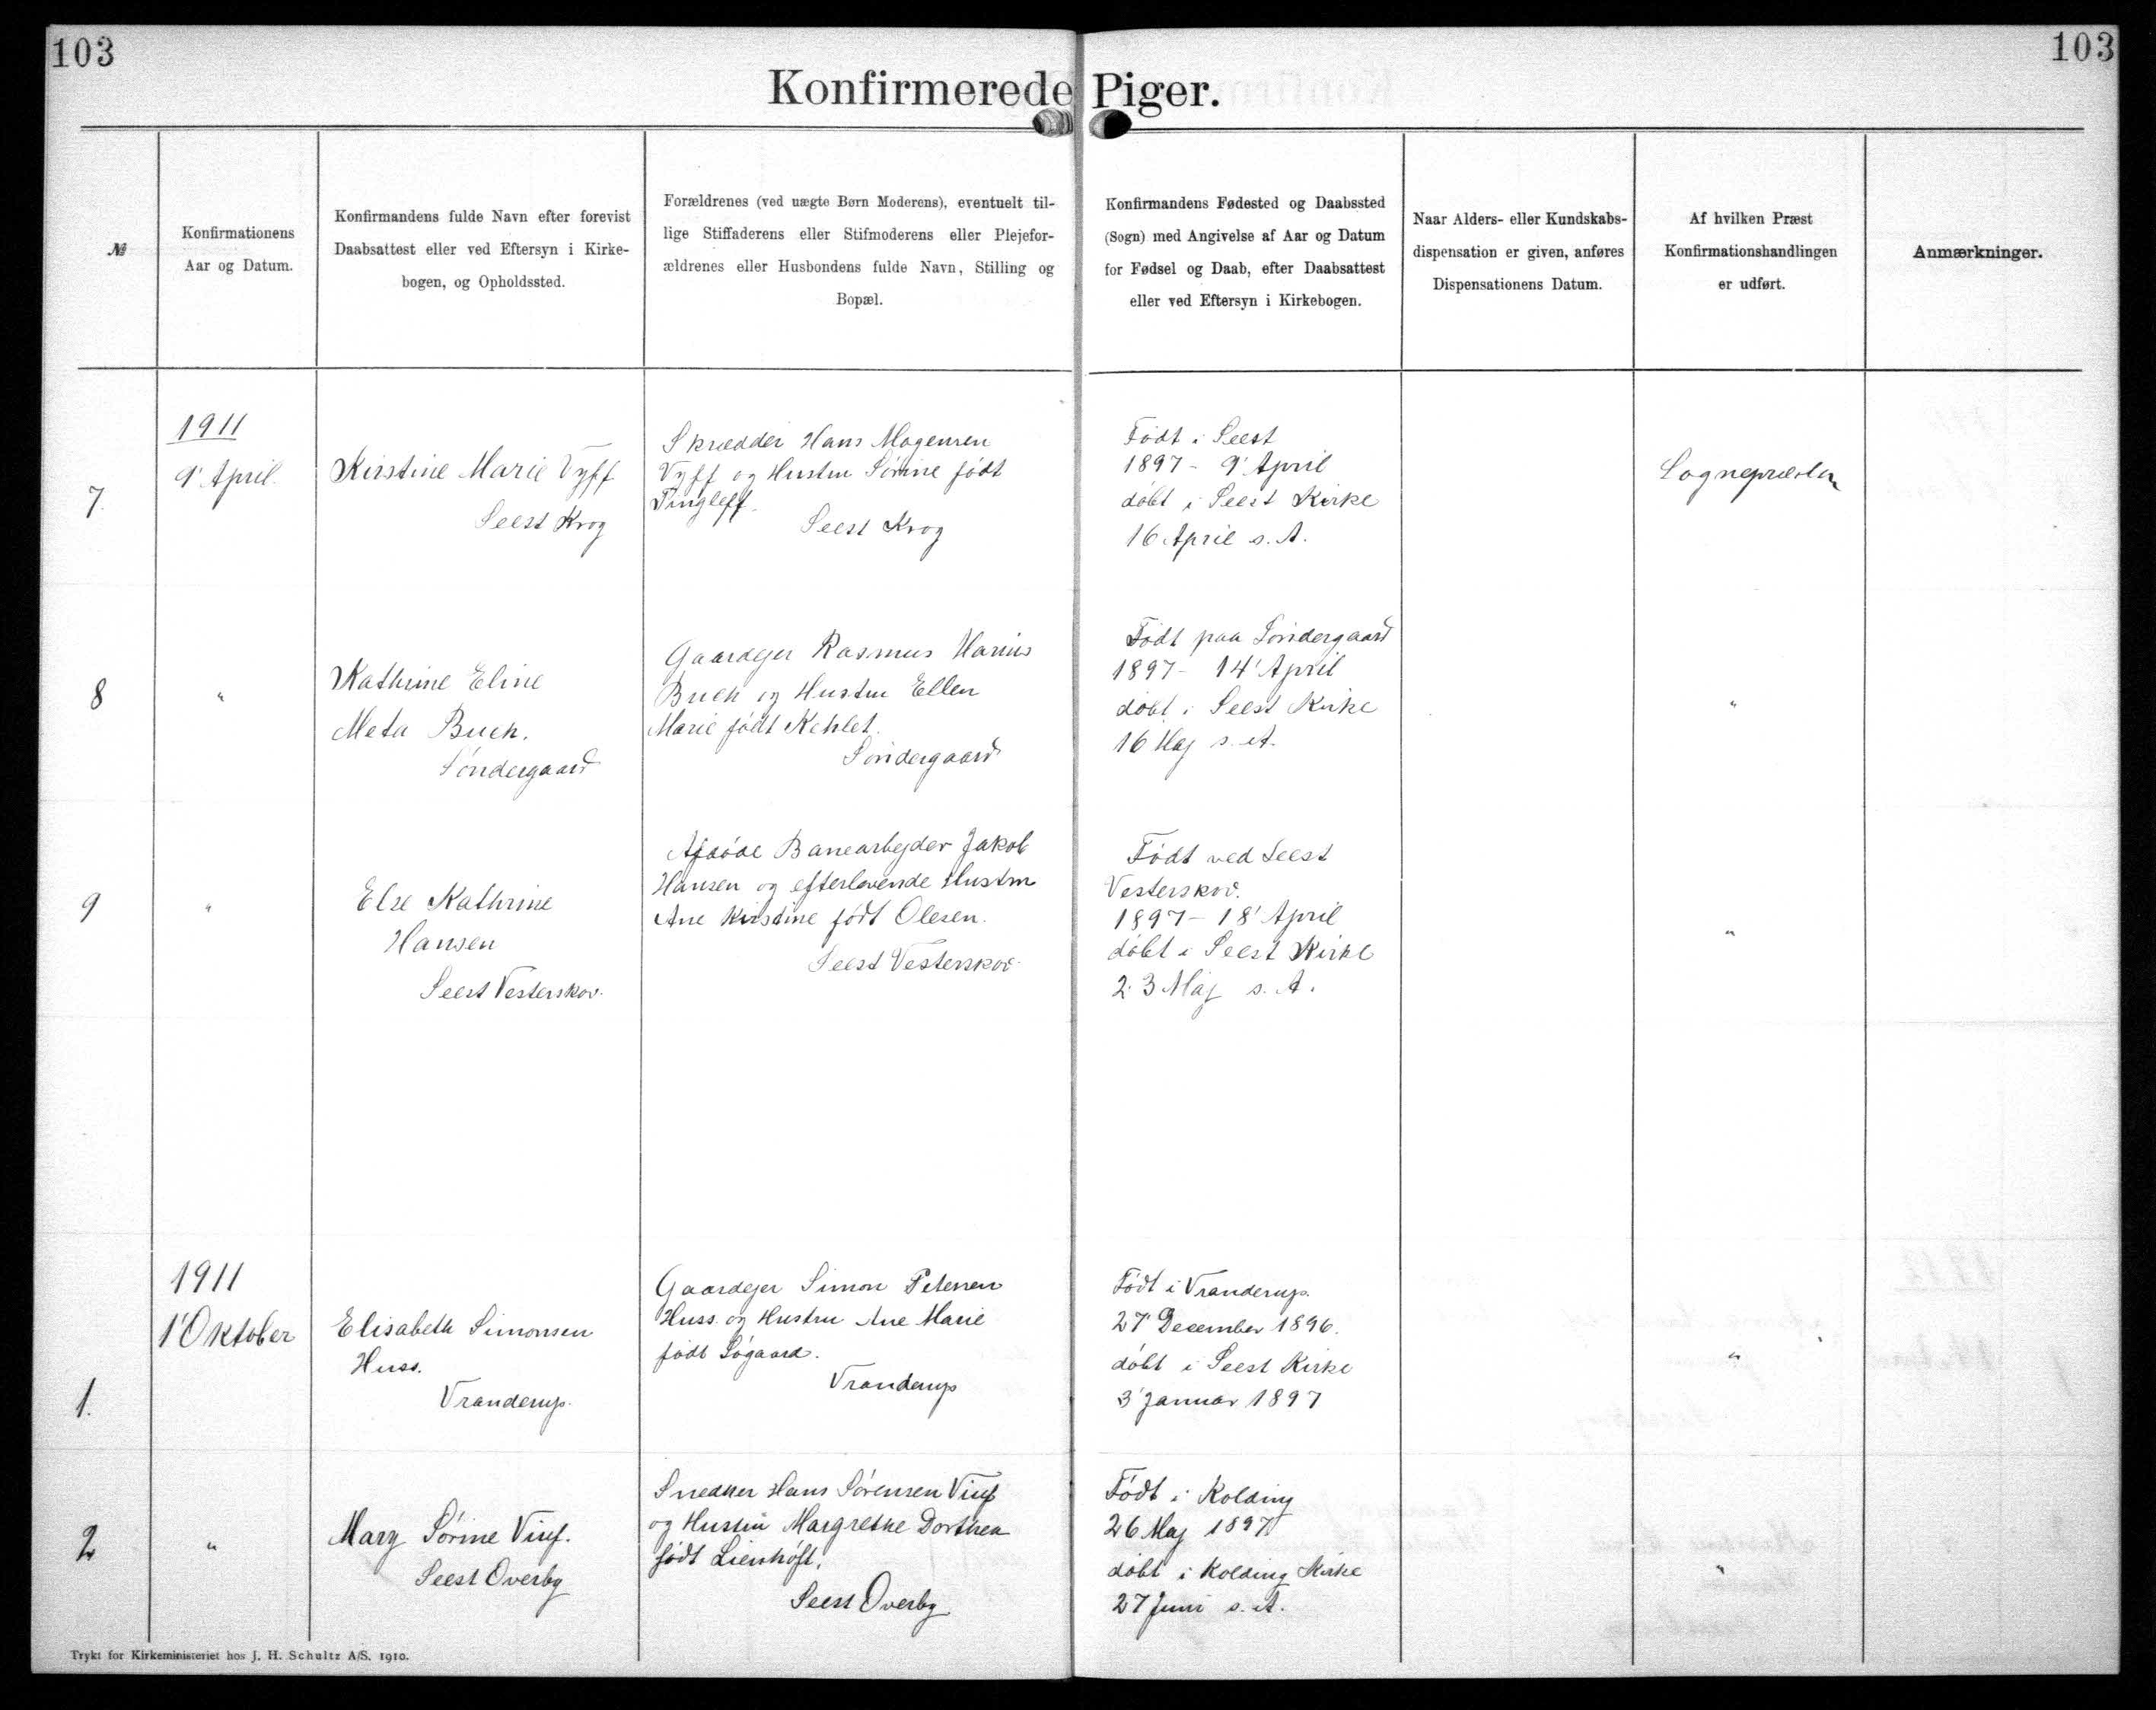 103
103
Konfirmerede Piger.
№
Konfirmationens
Aar og Datum.
Konfirmandens fulde Navn efter forevist
Daabsattest eller ved Eftersyn i Kirke-
bogen, og Opholdssted.
Forældrenes (ved uægte Børn Moderens), eventuelt til-
lige Stiffaderens eller Stifmoderens eller Plejefor-
ældrenes eller Husbondens fulde Navn, Stilling og
Bopæl.
Konfirmandens Fødested og Daabssted
(Sogn) med Angivelse af Aar og Datum
for Fødsel og Daab, efter Daabsattest
eller ved Eftersyn i Kirkebogen.
Naar Alders- eller Kundskabs-
dispensation er given, anføres
Dispensationens Datum.
Af hvilken Præst
Konfirmationshandlingen
er udført.
Anmærkninger.
7.
1911
9' April
Kirstine Marie Vyff
Seest Krog
Skrædder Hans Mogensen
Vyff og Hustru Sørine født
Tingleff.
Seest Krog
Født i Seest
1897 - 9' April
døbt i Seest Kirke
16 April s. A.
Sognepræsten
8
"
Kathrine Eline
Meta Buch.
Søndergaard
Gaardejer Rasmus Harius
Buch og Hustru Ellen
Marie født Kehlet.
Søndergaard
Født paa Søndergaard
1897 - 14' April
døbt i Seest Kirke
16 Maj s. A.
"
9
"
Else Kathrine
Hansen
Seest Vesterskov.
Afdøde Banearbejder Jakob
Hansen og efterlevende Hustru
Ane Kirstine født Olesen.
Seest Vesterskov
Født ved Seest
Vesterskov.
1897 - 18' April
døbt i Seest Kirke
23 Maj s. A.
"
1.
1911
1' Oktober
Elisabeth Simonsen
Huss.
Vranderup.
Gaardejer Simon Petersen
Huss og Hustru Ane Marie
født Søgaard.
Vranderup
Født i Vranderup.
27' December 1896.
døbt i Seest Kirke
3' Januar 1897
"
2
"
Mary Sørine Viuf.
Seest Overby
Snedker Hans Sørensen Viuf
og Hustru Margrethe Dorthea
født Lienhöft.
Seest Overby
Født i Kolding
26 Maj 1897
døbt i Kolding Kirke
27 Juni s. A.
"
Trykt for Kirkeministeriet hos J. H. Schultz A/S. 1910.